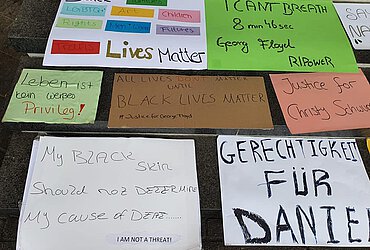 LGBTQI
ART
CHILDREN
RIGHTS
FUTURES
TRANS
Lives Matter
I CANT BREATH
8 min 46 sec
Georg Floyd
RIPOWER
SA
NA
Leben ist
kein weißes
Privileg!
ALL LIVES DON'T MATTER
UNTIL
BLACK LIVES MATTER
#JusticeforGeorgeFloyd
Justice for
Christy Schwun
My BLACK
SKIN
Should not DETERMINE
My cause of DEAT.....
I AM NOT A THREAT!
GERECHTIGKEI
FÜR
DANIE